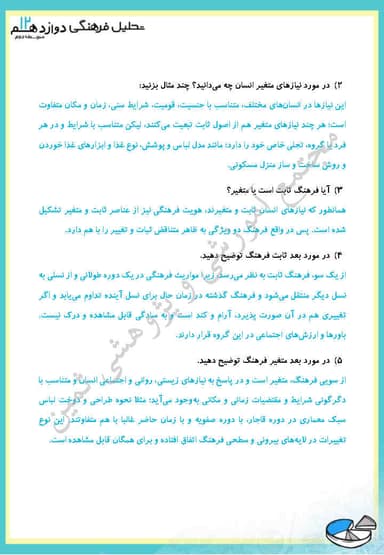 تحلیل فرهنگی دوازدهم
۱۲
متوسطه دوم
۲) در مورد نیازهای متغیر انسان چه می‌دانید؟ چند مثال بزنید:
این نیازها در انسان‌های مختلف، متناسب با جنسیت، قومیت، شرایط سنی، زمان و مکان متفاوت
است؛ هر چند نیازهای متغیر هم از اصول ثابت تبعیت می‌کنند، لیکن متناسب با شرایط و در هر
فرد یا گروه، تجلی خاص خود را دارد؛ مانند مدل لباس و پوشش، نوع غذا و ابزارهای غذا خوردن
و روش ساخت و ساز منزل مسکونی.
۳) آیا فرهنگ ثابت است یا متغیر؟
همانطور که نیازهای انسان ثابت و متغیرند، هویت فرهنگی نیز از عناصر ثابت و متغیر تشکیل
شده است. پس در واقع فرهنگ دو ویژگی به ظاهر متناقض ثبات و تغییر را با هم دارد.
۴) در مورد بعد ثابت فرهنگ توضیح دهید.
از یک سو، فرهنگ ثابت به نظر می‌رسد، زیرا مواریث فرهنگی در یک دوره طولانی و از نسلی به
نسل دیگر منتقل می‌شود و فرهنگ گذشته در زمان حال برای نسل آینده تداوم می‌یابد و اگر
تغییری هم در آن صورت پذیرد، آرام و کند است و به سادگی قابل مشاهده و درک نیست.
باورها و ارزش‌های اجتماعی در این گروه قرار دارند.
۵) در مورد بعد متغیر فرهنگ توضیح دهید.
از سویی فرهنگ، متغیر است و در پاسخ به نیازهای زیستی، روانی و اجتماعی انسان و متناسب با
دگرگونی شرایط و مقتضیات زمانی و مکانی به‌وجود می‌آید؛ مثلا نحوه طراحی و دوخت لباس
سبک معماری در دوره قاجار، با دوره صفویه و با زمان حاضر غالبا با هم متفاوتند. این نوع
تغییرات در لایه‌های بیرونی و سطحی فرهنگ اتفاق افتاده و برای همگان قابل مشاهده است.
مجتمع آموزشی و پژوهشی ثمین